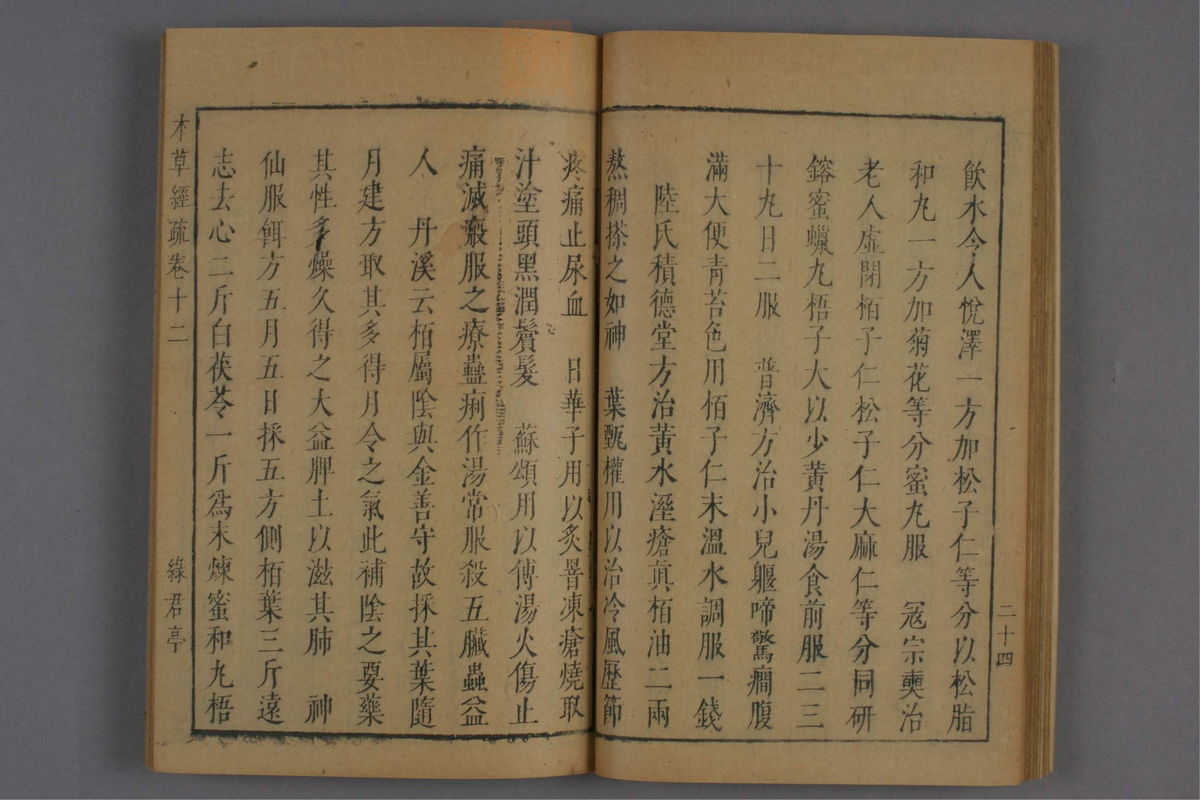 二十四
飲水令人悅澤一方加松子仁等分以松脂
和丸一方加菊花等分蜜丸服　冦宗奭治
老人虛閉栢子仁松子仁大麻仁等分同研
鎔蜜蠟丸梧子大以少黃丹湯食前服二三
十丸日二服　普濟方治小兒軀啼驚癇腹
滿大便青苔色用栢子仁末溫水調服一錢
陸氏積德堂方治黃水溼瘡眞栢油二兩
熬稠搽之如神　葉甄權用以治冷風歷節
疼痛止尿血　日華子用以炙罯凍瘡燒取
汁塗頭黑潤鬢髮　蘇頌用以傅湯火傷止
痛滅瘢服之療蠱痢作湯常服殺五臟蟲益
人　丹溪云栢屬陰與金善守故採其葉隨
月建方取其多得月令之氣此補陰之要藥
其性多燥久得之大益脾土以滋其肺　神
仙服餌方五月五日採五方側栢葉三斤遠
志去心二斤白茯苓一斤爲末煉蜜和丸梧
本草經疏卷十二
綠君亭